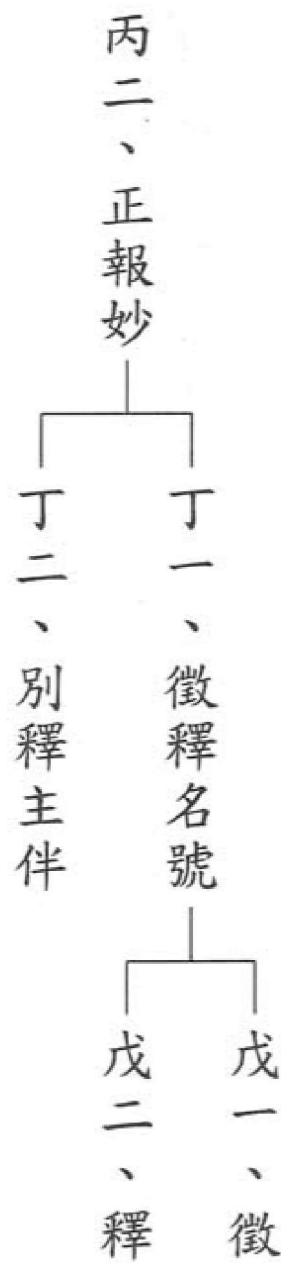 丙二、正報妙
丁一、徵釋名號
戊一、徵
戊二、釋
丁二、別釋主伴